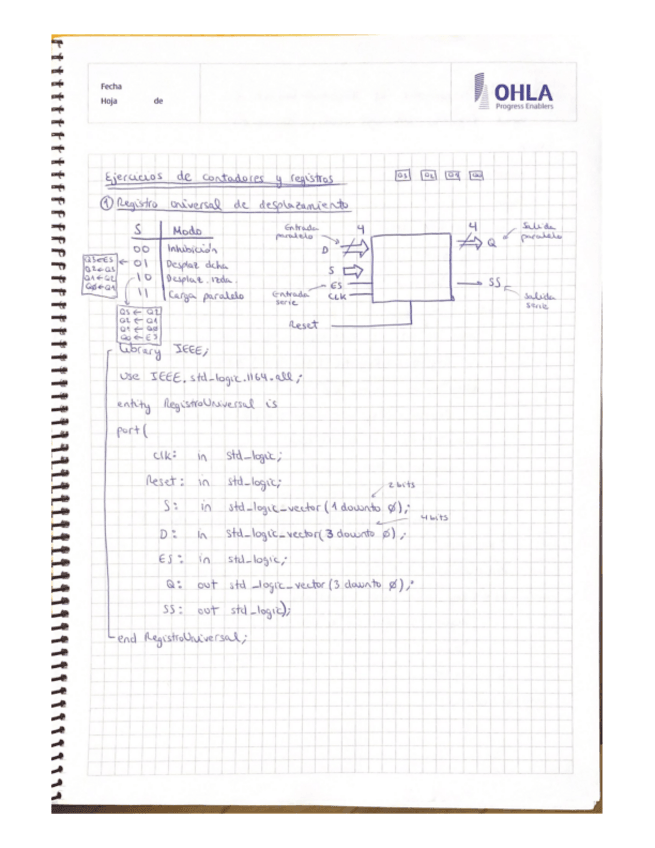 Fecha
Hoja de
OHLA
Progress Enablers
Ejercicios de contadores y registros
Q3 Q2 Q1 Q0
① Registro universal de desplazamiento
S Modo
00 Inhibición
01 Desplaz dcha
10 Desplaz. izda.
11 Carga paralelo
Q3←ES
Q2←Q3
Q1←Q2
Q0←Q1
Q3 ← Q2
Q2 ← Q1
Q1 ← Q0
Q0 ← ES
Entrada paralelo
4
D
S
ES
CLK
Entrada serie
Reset
4
Q
Salida paralelo
SS
Salida serie
library IEEE;
use IEEE.std_logic.1164.all;
entity RegistroUniversal is
port(
Clk: in std_logic;
Reset: in std_logic;
2 bits
S: in std_logic_vector(1 downto 0);
4 bits
D: in std_logic_vector(3 downto 0);
ES: in std_logic;
Q: out std_logic_vector(3 downto 0);
SS: out std_logic);
end RegistroUniversal;